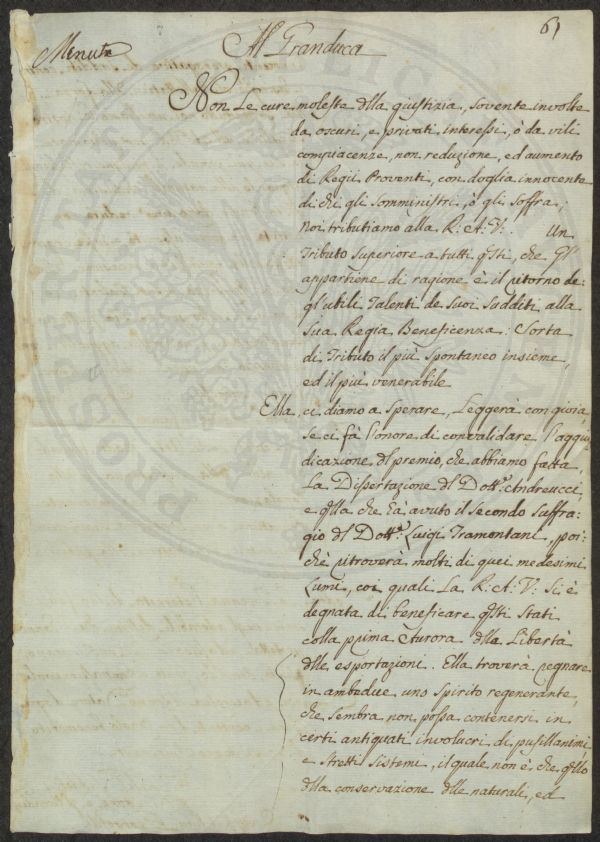 61
Minuta
Al Granduca
Non Le cure moleste dlla giustizia, sovente involte
da oscuri, e privati interessi, ò da vili
compiacenze, non reduzione, ed aumento
di Regii Proventi, con doglia innocente
di chi gli somministri, ò gli soffra,
noi tributiamo alla R: A: V:. Un
Tributo superiore a tutti qsti, che Gl'
appartiene di ragione è il ritorno de:
gl'utili Talenti de Suoi Sudditi alla
Sua Regia Beneficenza: Sorta
di Tributo il più spontaneo insieme,
ed il più venerabile
Ella, ci diamo a sperare, Leggerà con gioia,
se ci fà l'onore di convalidare l'aggiu
dicazione dl premio, che abbiamo fatta,
La Dissertazione dl Dott.e Andreucci,
e qlla che hà avuto il secondo suffra:
gio dl Dott.e Luigi Tramontani, poi:
chè ritroverà molti di quei medesimi
Lumi, coi quali La R: A: V: si è
degnata di beneficare qsti Stati
colla prima Aurora dlla Libertà
dlle esportazioni. Ella troverà regnare
in ambedue uno spirito regenerante,
che sembra non possa contenersi in
certi antiquati involucri di pusillanimi,
e stretti sistemi, il quale non è, che qllo
dlla conservazione dlle naturali, ed